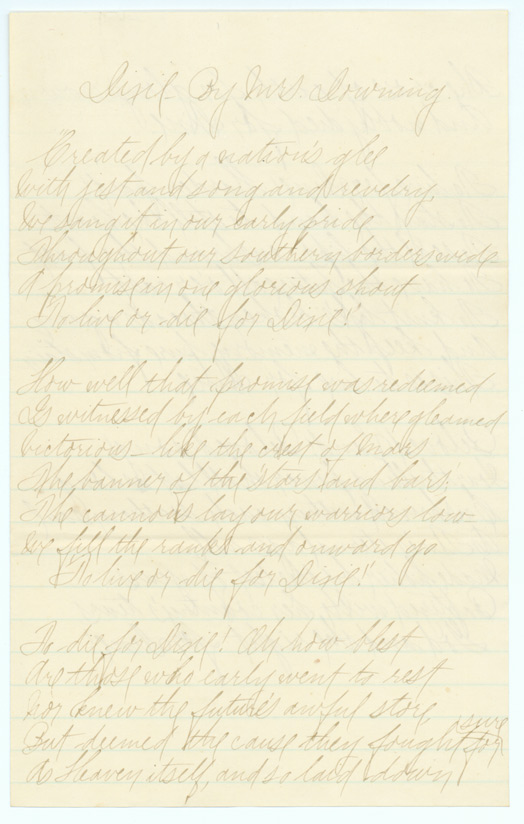 Dixie – By Mrs. Downing.
Created by a nation's glee
With jest and song and revelry,
We sang it in our early pride
Throughout our southern borders wide
A promise in one glorious shout
"To live or die for Dixie!"
How well that promise was redeemed
Is witnessed by each field where gleamed
Victorious – like the crest of Mars
The banner of the stars and bars.
The cannons lay our warriors low –
We fill the ranks and onward go
"To live or die for Dixie!"
To die for Dixie! Oh how blest
Are those who early went to rest
Nor knew the future's awful store,
But deemed the cause they fought for sure
As Heaven itself, and so laid down